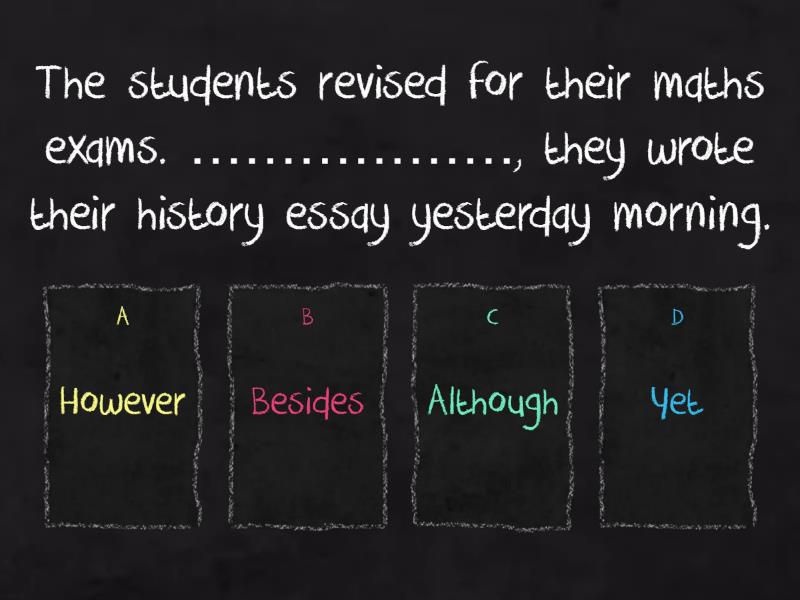 The students revised for their maths
exams. ..................., they wrote
their history essay yesterday morning.
A
However
B
Besides
C
Although
D
Yet